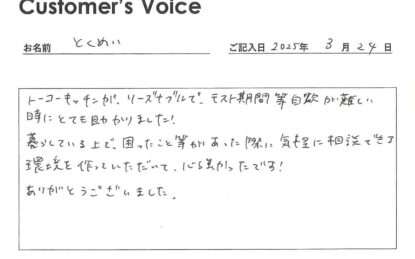 Customer's Voice
お名前 とくめい ご記入日 2025年 3月24日
トーコーキッチンが、リーズナブルで、テスト期間等自炊が難しい
時にとても助かりました!
暮らしている上で、困ったこと等があった際に気軽に相談できる
環境を作っていただいて、心強かったです!
ありがとうございました。